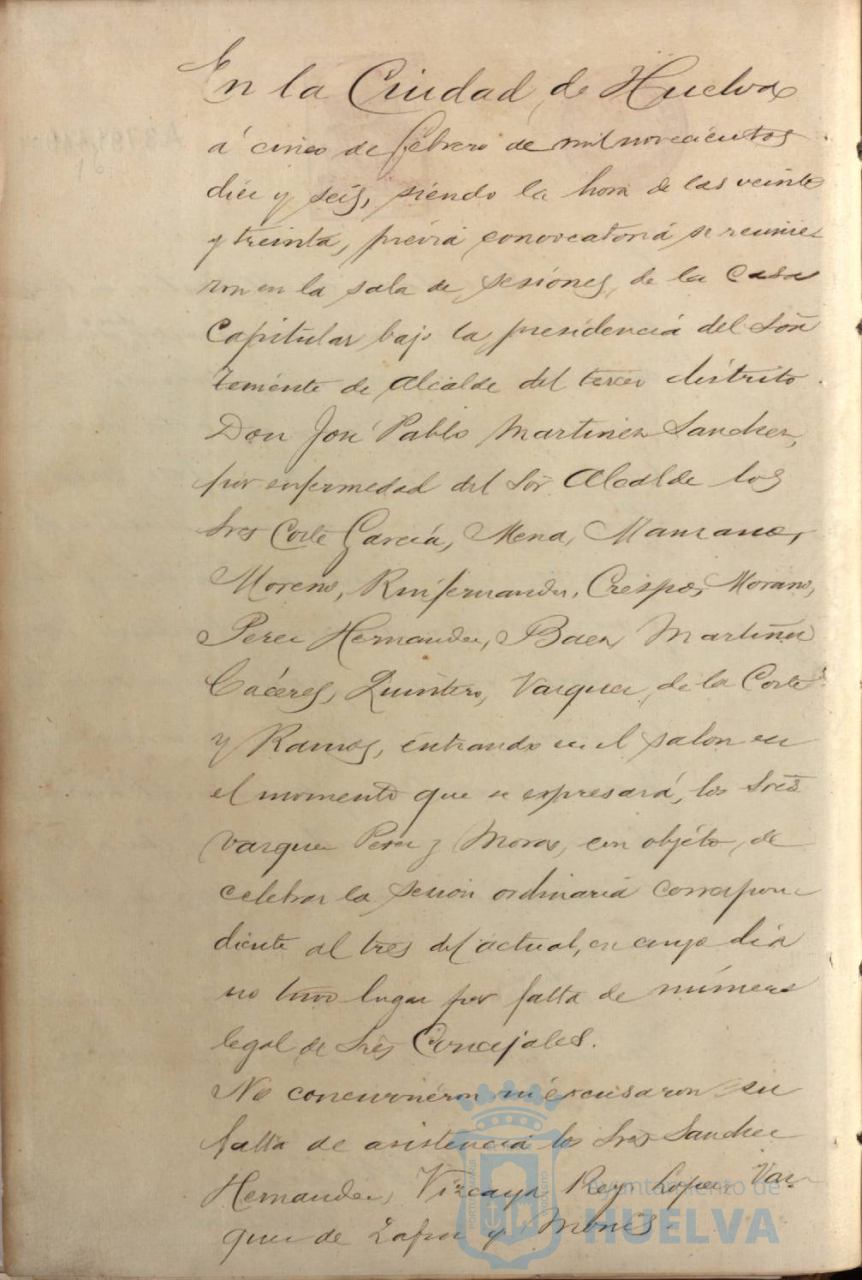 En la Ciudad de Huelva
á cinco de febrero de mil novecientos
diez y seis, siendo la hora de las veinte
y treinta, previa convocatoria se reunie
ron en la sala de sesiones, de la Casa
Capitular bajo la presidencia del Sor
teniente de Alcalde del tercer distrito
Don José Pablo Martinez Sanchez,
por enfermedad del Sor. Alcalde los
Sres Corte Garcia, Mena, Manzano,
Moreno, Ruifernandez, Crespo, Morano,
Perez Hernandez, Baez Martinez
Cáceres, Quintero, Vazquez, de la Corte
y Ramos, entrando en el salon en
el momento que se expresará, los Sres
Vazquez Perez y Mora, con objeto, de
celebrar la sesion ordinaria correspon
diente al tres del actual, en cuyo dia
no tuvo lugar por falta de número
legal de Sres Concejales.
No concurrieron ni excusaron su
falta de asistencia los Sres Sanchez
Hernandez, Vizcaya, Rey Lopez, Vaz
quez de Zafra y Monis.
Ayuntamiento de
HUELVA